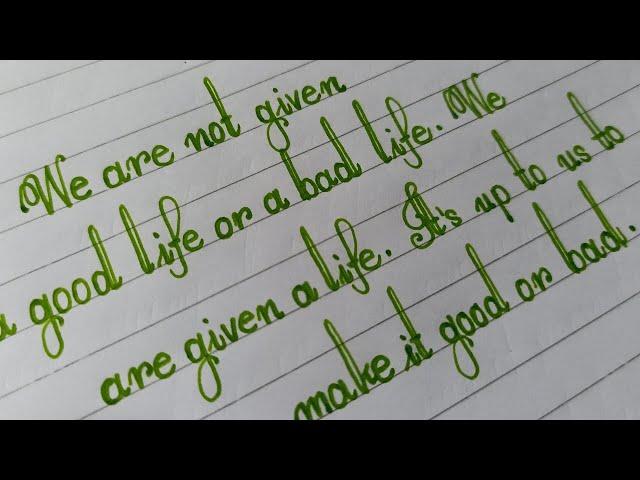 We are not given
a good life or a bad life. We
are given a life. It's up to us to
make it good or bad.